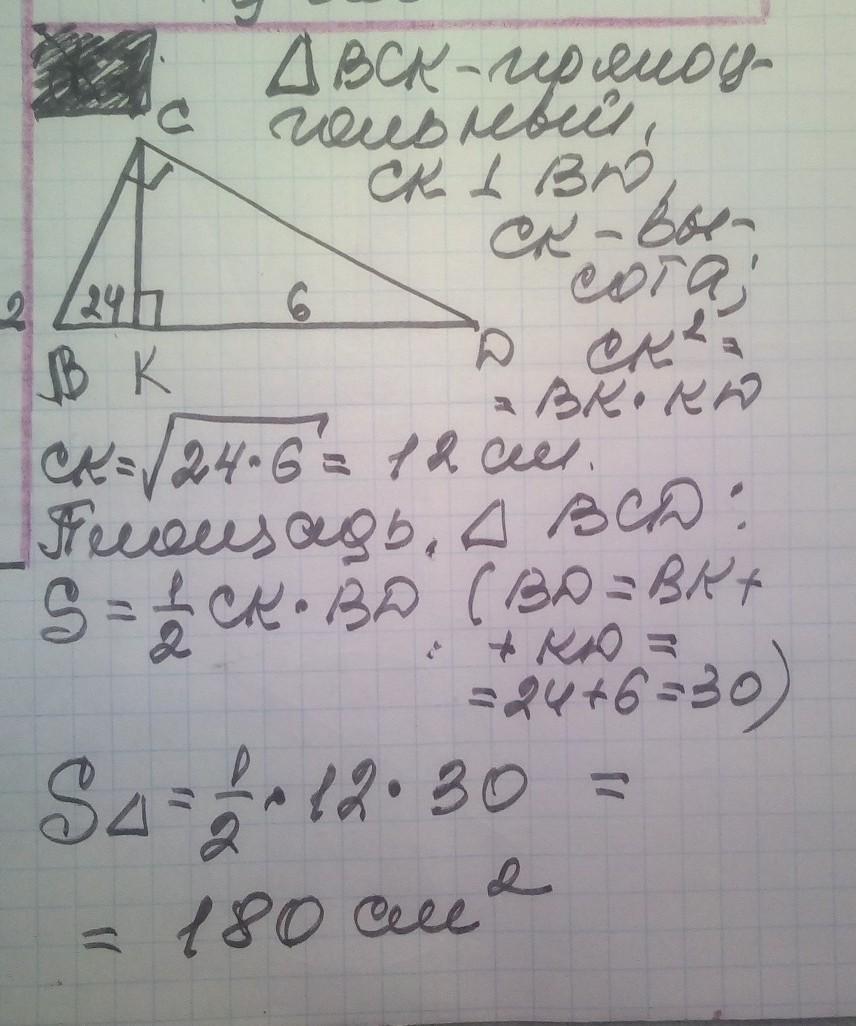 △ BCK - прямоу-
гольный,
C
CK ⊥ BD,
CK - вы-
сота;
2
24
6
B K D
CK² =
= BK · KD
CK = √24·6 = 12 см.
Площадь △ BCD:
S = 1/2 CK · BD (BD = BK +
+ KD =
= 24 + 6 = 30)
S△ = 1/2 · 12 · 30 =
= 180 см²